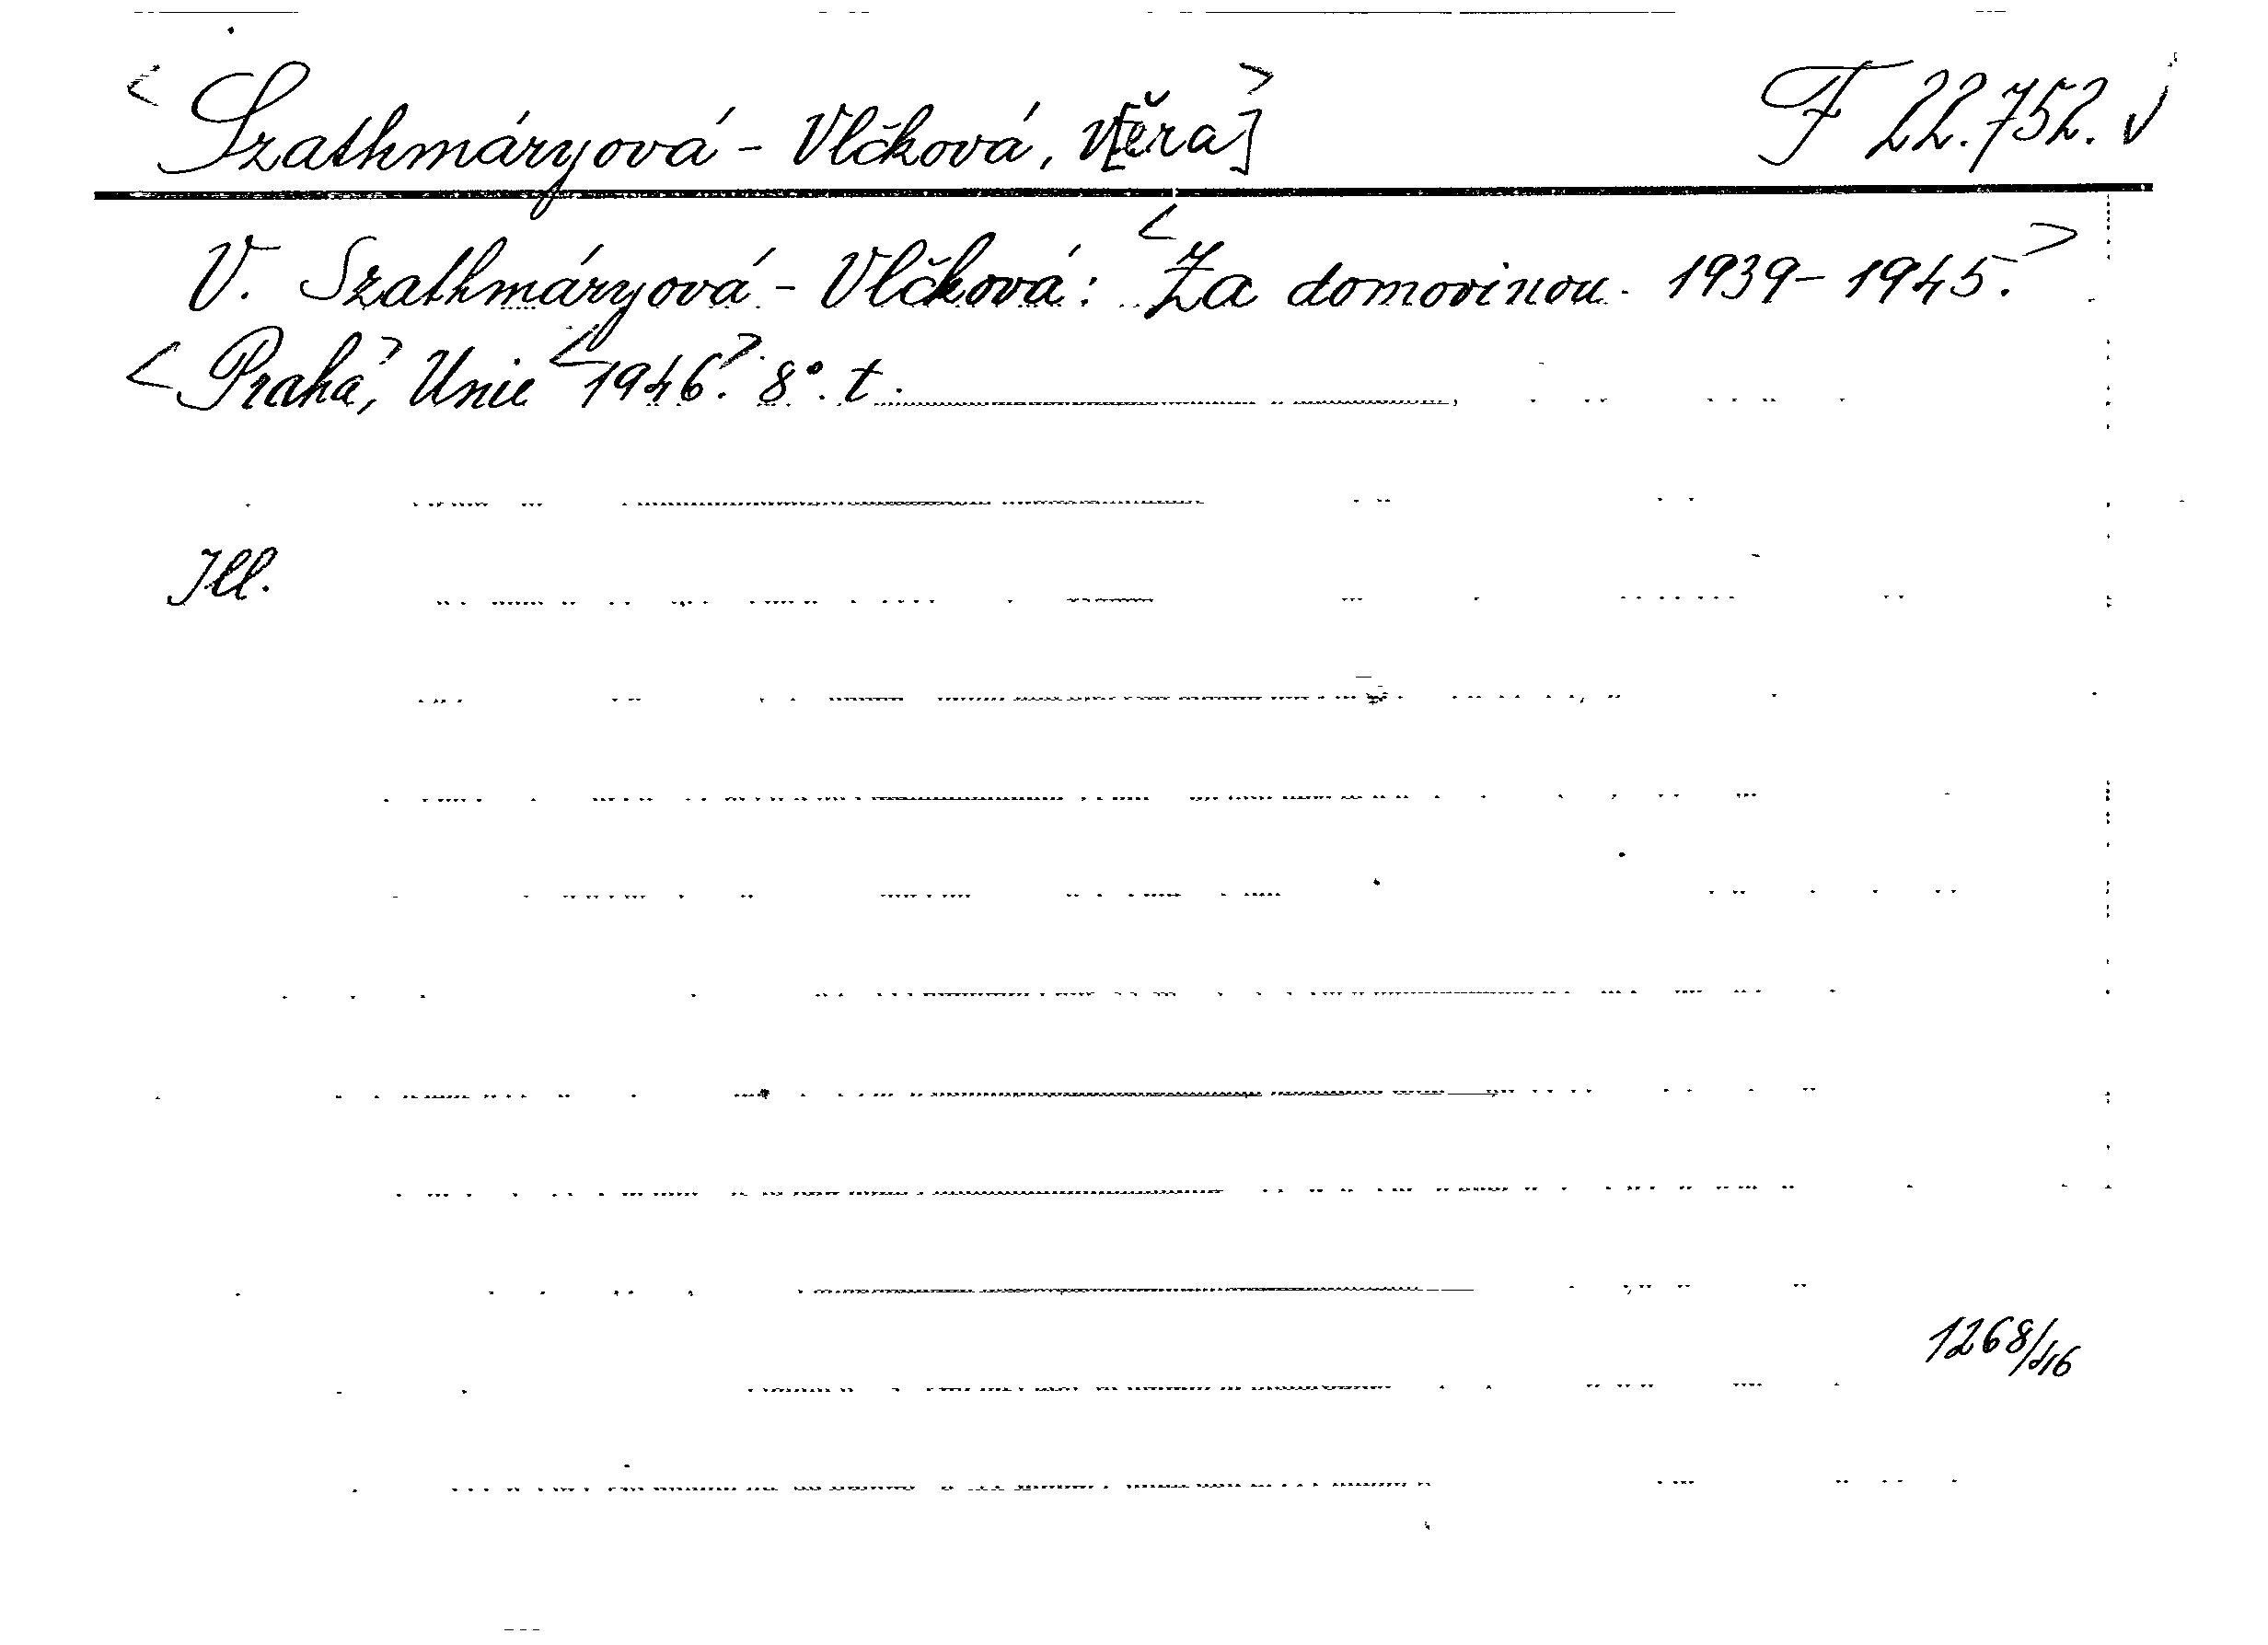 <Szathmáryová-Vlčková, V[ěra]> F 22.752. √
V. Szathmáryová-Vlčková: <Za domovinou. 1939-1945.>
<Praha>, Unie <1946.> 8°. t.
Ill.
1268/46